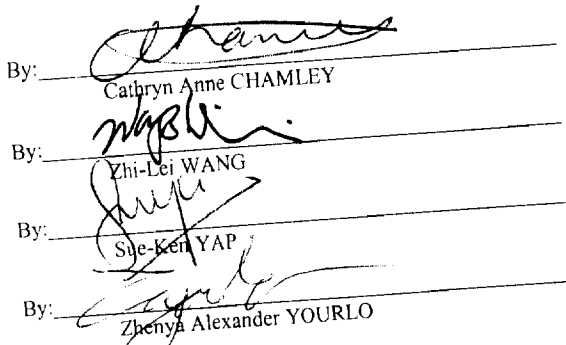 By:
Cathryn Anne CHAMLEY
By:
Zhi-Lei WANG
By:
Sue-Ken YAP
By:
Zhenya Alexander YOURLO